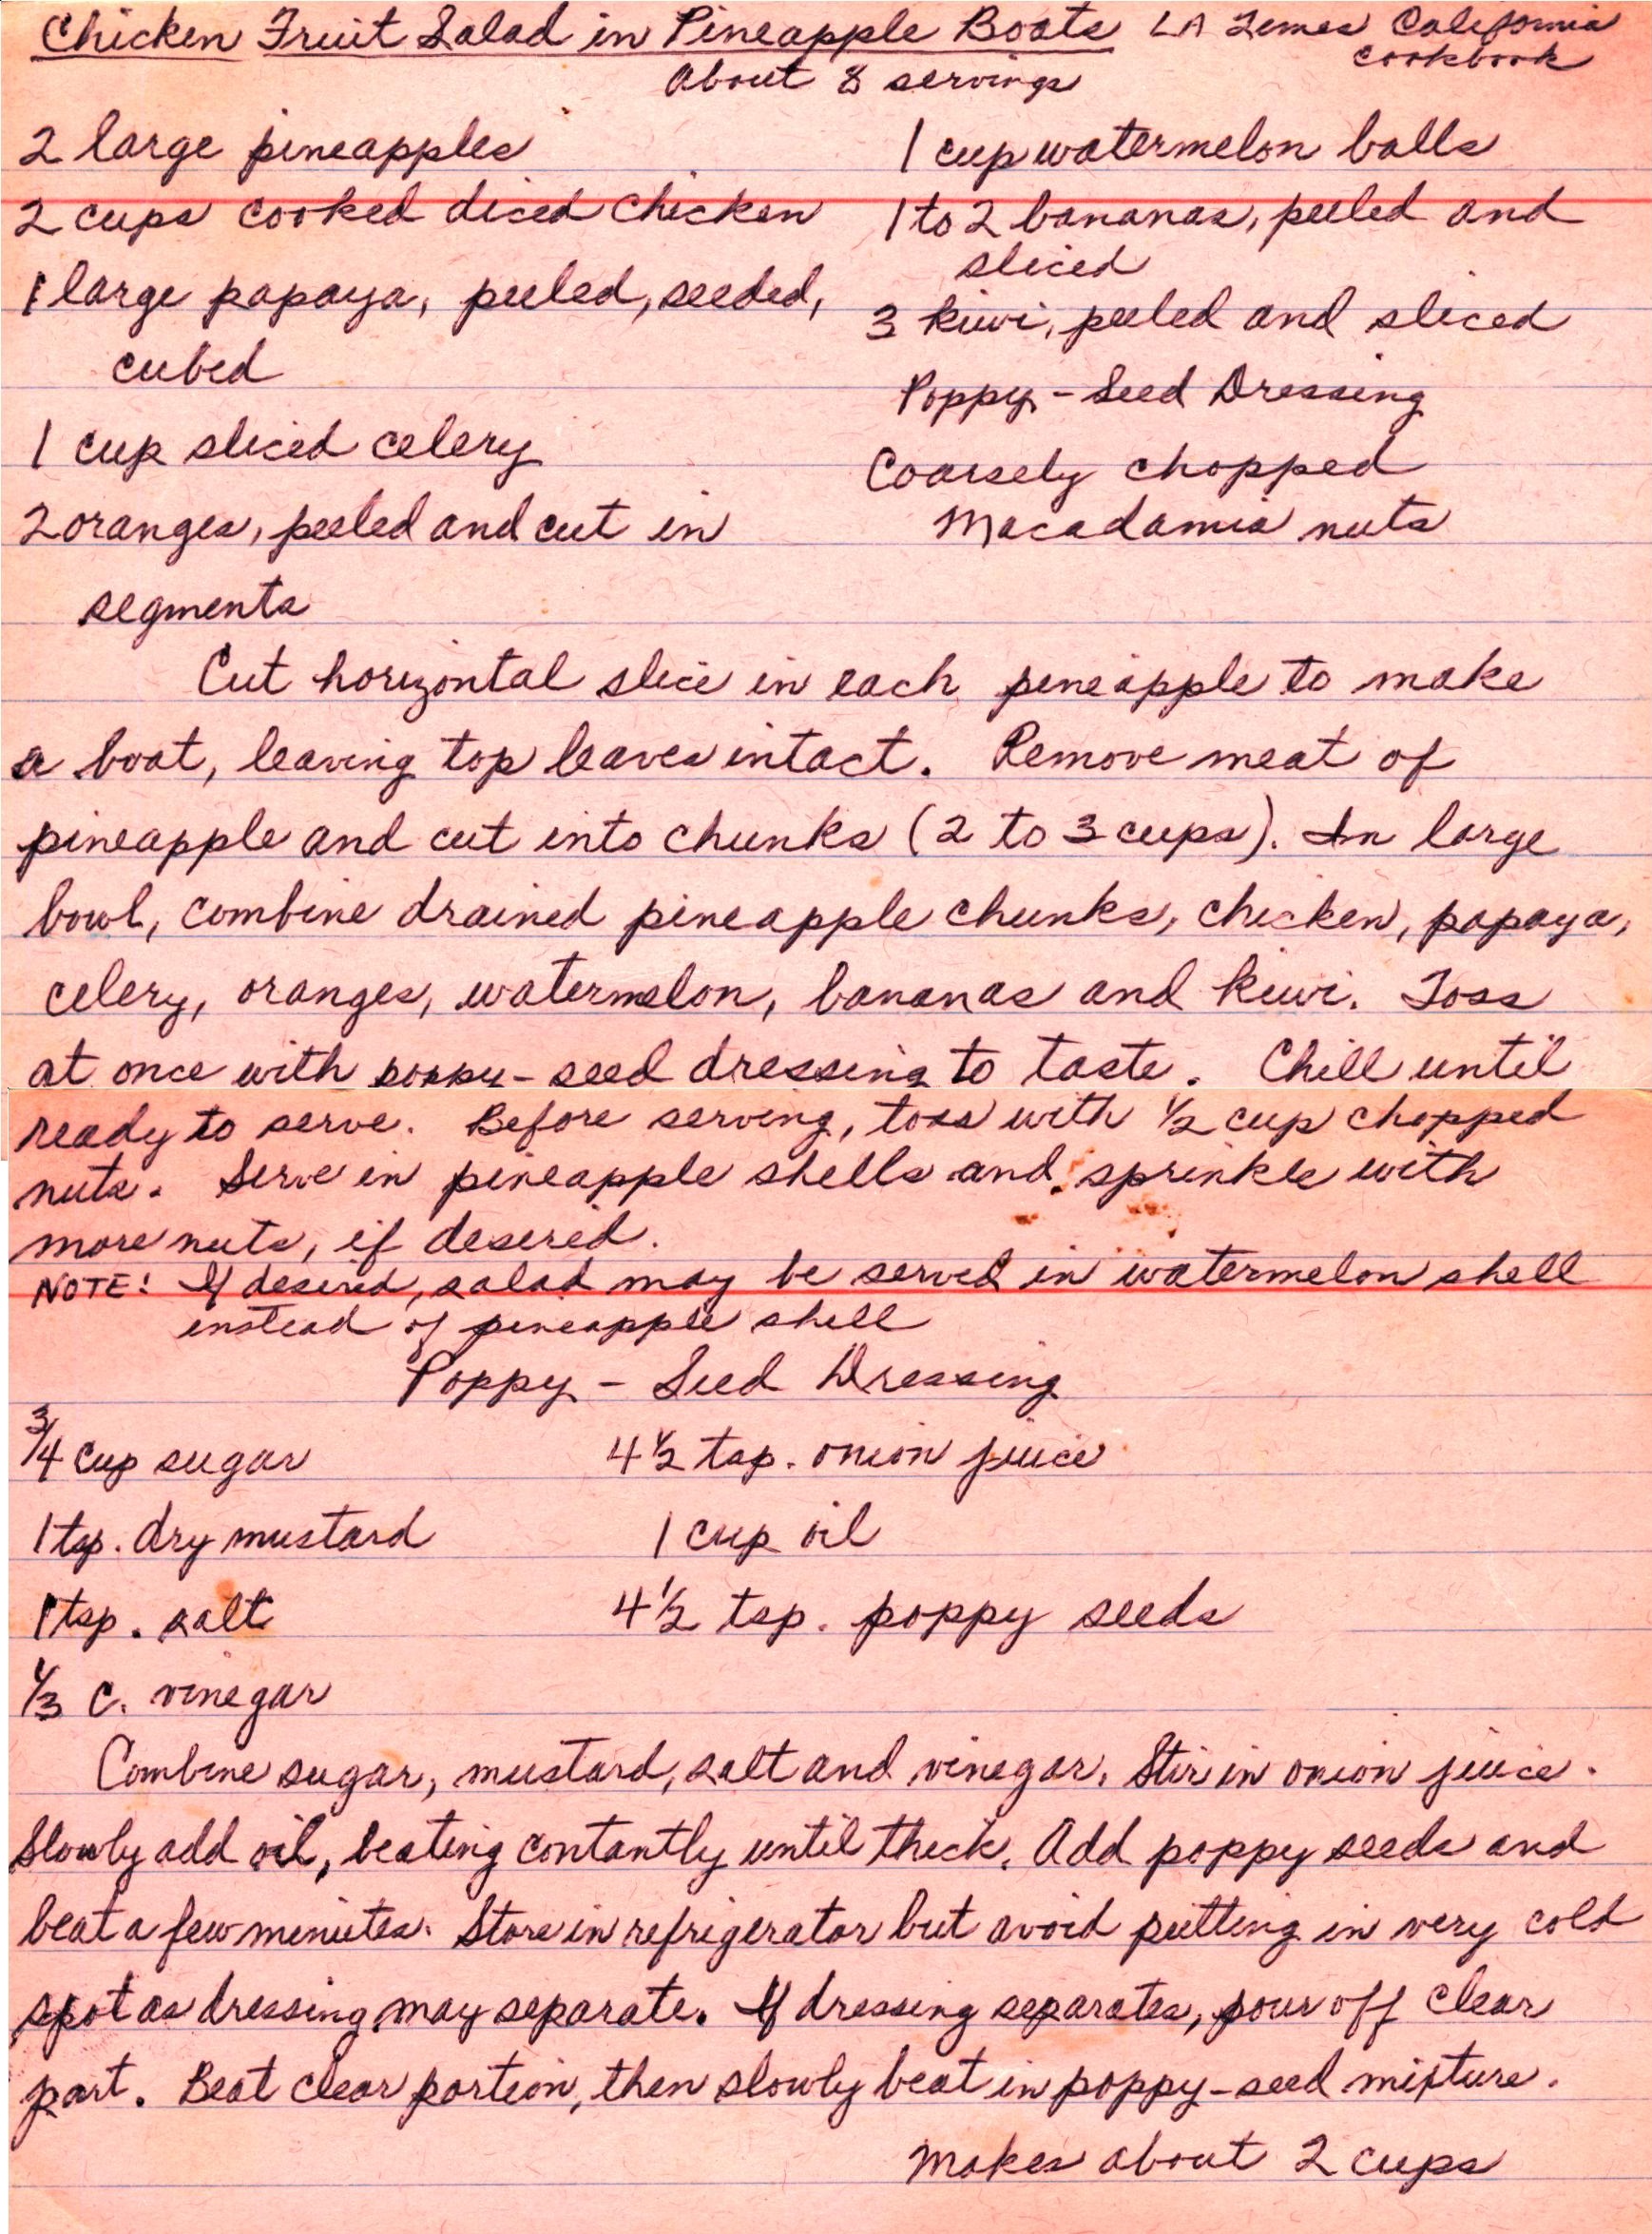 Chicken Fruit Salad in Pineapple Boats LA Times California
Cookbook
About 8 servings
2 large pineapples
2 cups cooked diced chicken
1 large papaya, peeled, seeded,
cubed
1 cup sliced celery
2 oranges, peeled and cut in
segments
1 cup watermelon balls
1 to 2 bananas, peeled and
sliced
3 kiwi, peeled and sliced
Poppy-Seed Dressing
Coarsely chopped
Macadamia nuts
Cut horizontal slice in each pineapple to make
a boat, leaving top leaves intact. Remove meat of
pineapple and cut into chunks (2 to 3 cups). In large
bowl, combine drained pineapple chunks, chicken, papaya,
celery, oranges, watermelon, bananas and kiwi. Toss
at once with poppy-seed dressing to taste. Chill until
ready to serve. Before serving, toss with 1/2 cup chopped
nuts. Serve in pineapple shells and sprinkle with
more nuts, if desired.
NOTE: If desired, salad may be served in watermelon shell
instead of pineapple shell
Poppy-Seed Dressing
3/4 cup sugar
1 tsp. dry mustard
1 tsp. salt
1/3 c. vinegar
4 1/2 tsp. onion juice
1 cup oil
4 1/2 tsp. poppy seeds
Combine sugar, mustard, salt and vinegar. Stir in onion juice.
Slowly add oil, beating contantly until thick. Add poppy seeds and
beat a few minutes. Store in refrigerator but avoid putting in very cold
spot as dressing may separate. If dressing separates, pour off clear
part. Beat clear portion, then slowly beat in poppy-seed mixture.
Makes about 2 cups